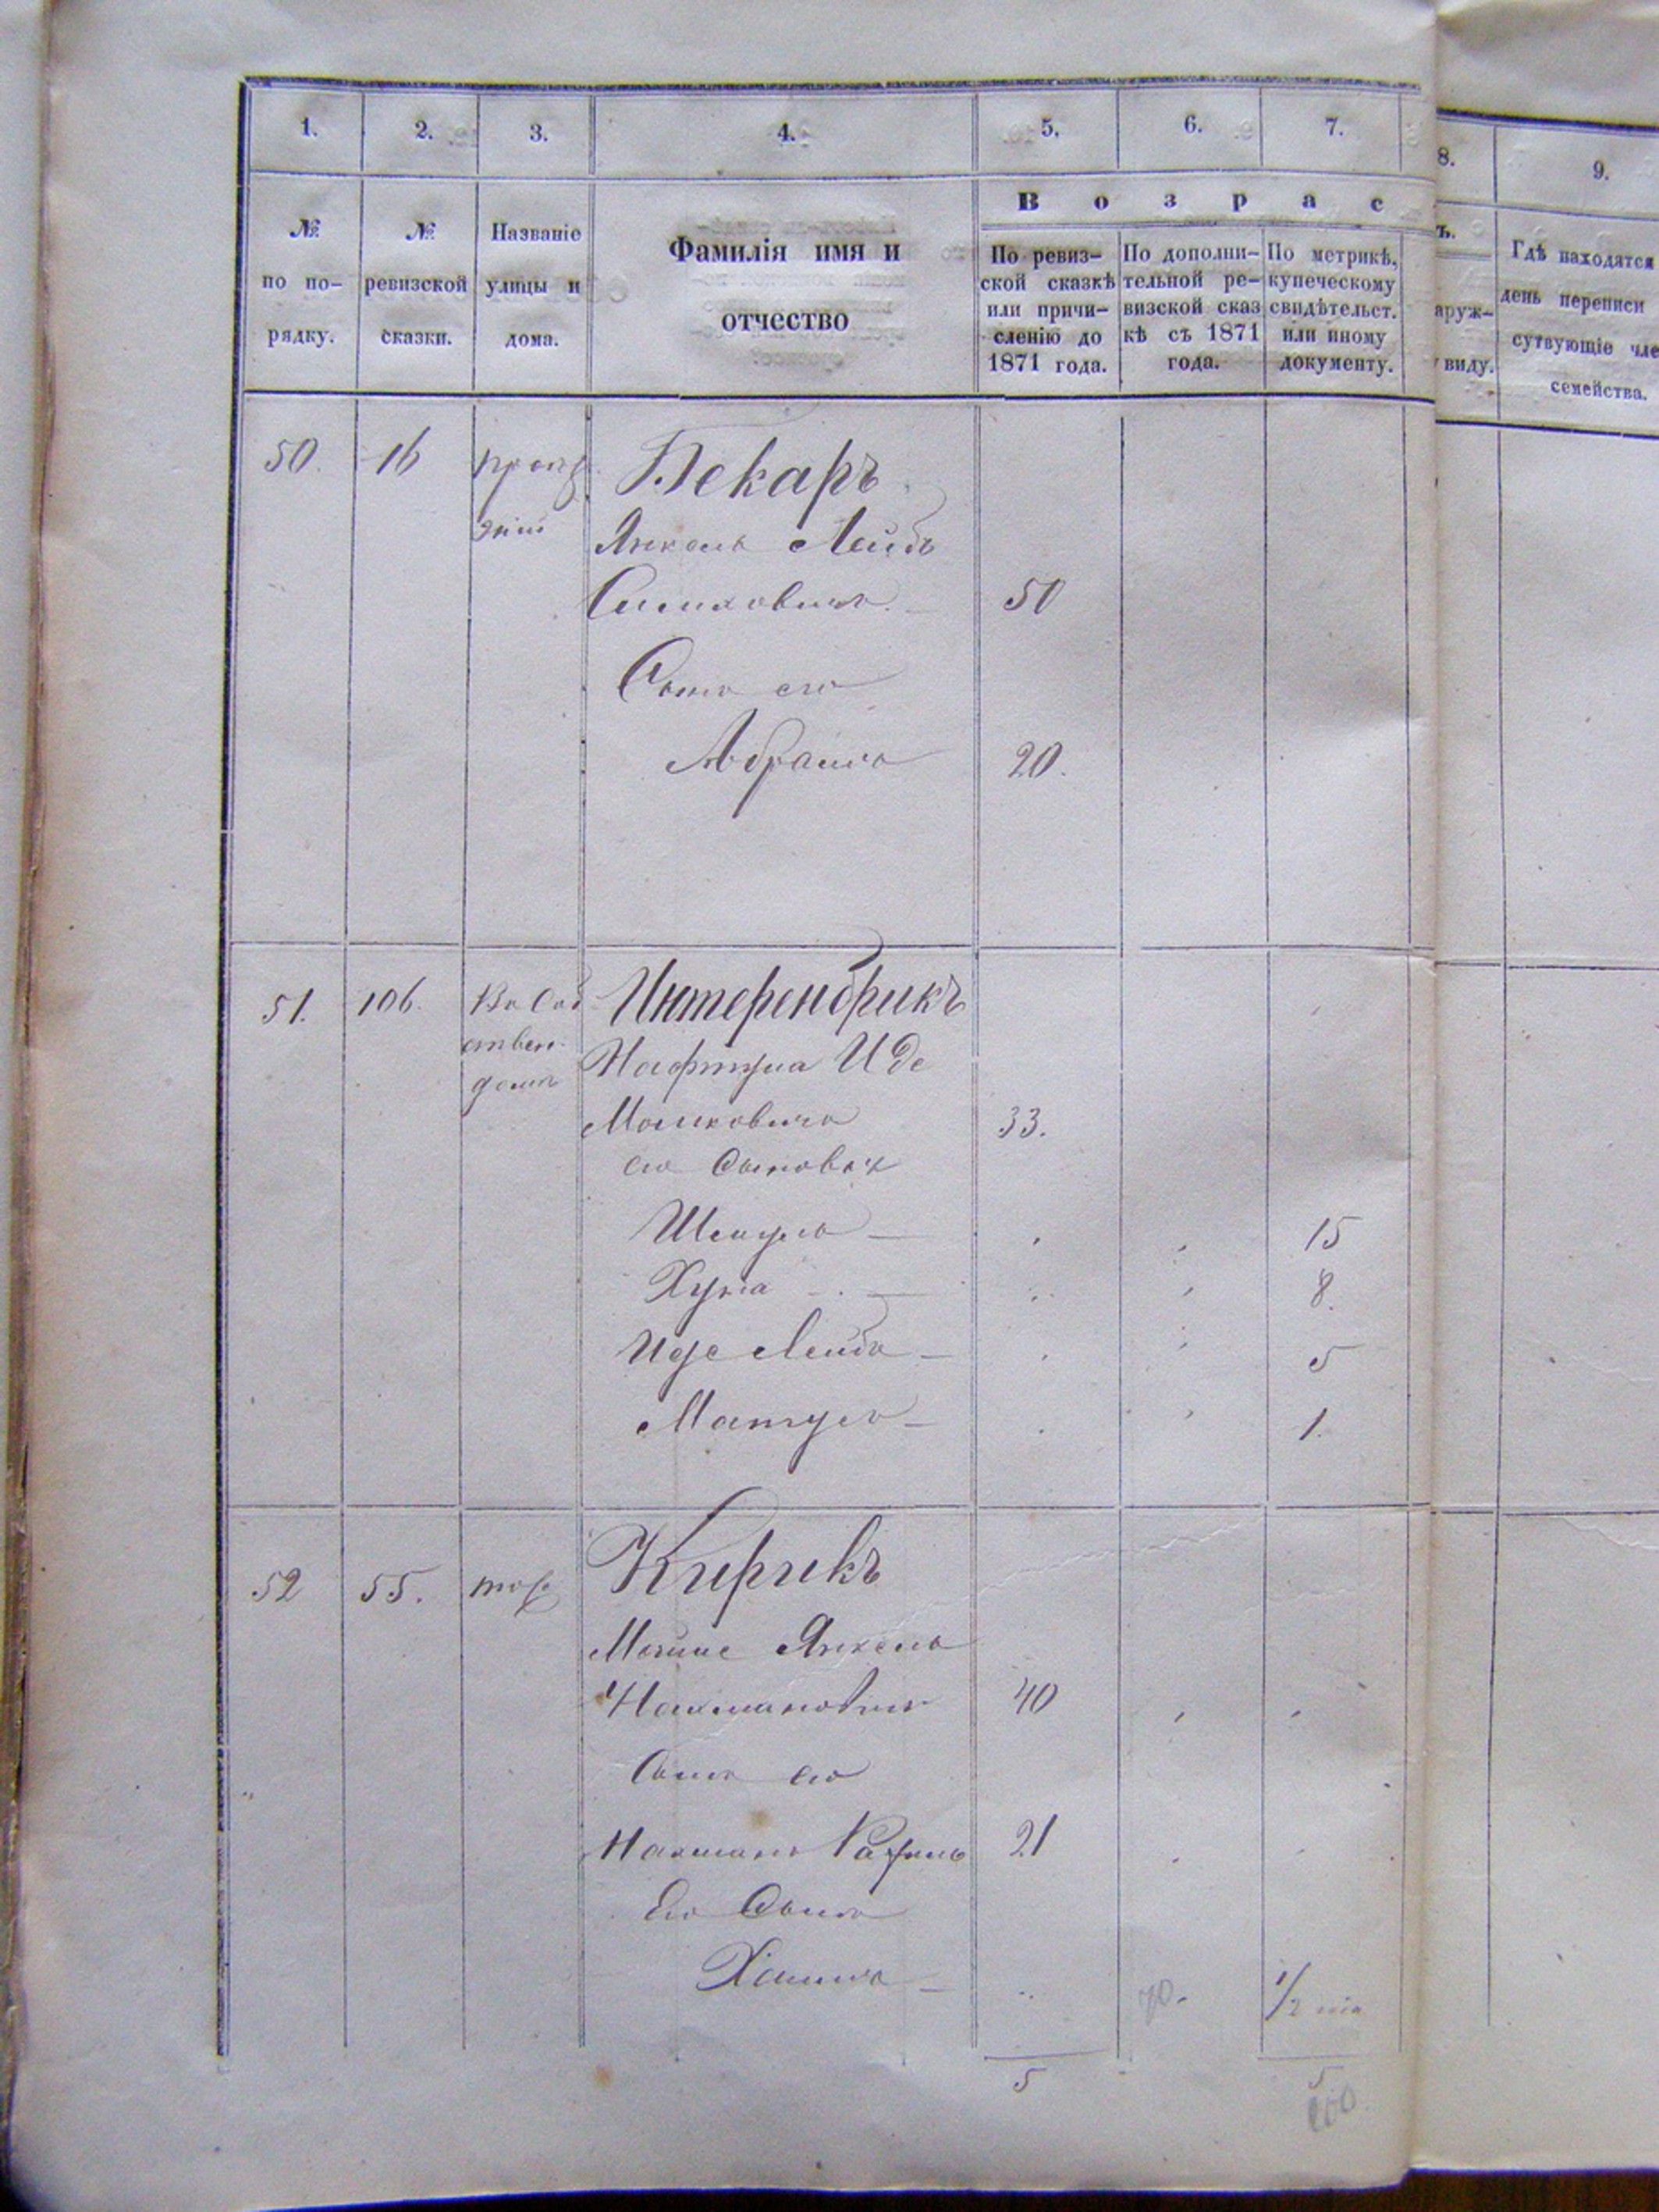 1.
2.
3.
4.
5.
6.
7.
8.
9.
В о з р а с
ъ.
№ по по-
рядку.
№
ревизской
сказки.
Названіе
улицы и
дома.
Фамилія имя и
отчество
По ревиз-
ской сказкѣ
или причи-
сленію до
1871 года.
По дополни-
тельной ре-
визской сказ
кѣ съ 1871
года.
По метрикѣ,
купеческому
свидѣтельст.
или иному
документу.
аруж-
виду.
Гдѣ находятся
день переписи
сутвующіе чле
семейства.
50. 16 Бекаръ
Янкель Лейбъ
50
Сынъ его
Абрамъ 20.
51. 106. Интерендрикъ
ствен. Нафтула Иде
домъ
Мошковичъ 33.
его Сыновья
Шмуль 15
Хуна 8.
Иде Лейбъ 5
Матусъ 1.
52 55. тоже Кирикъ
Мойше Янкель
Нахмановичъ 40
Сынъ его
Нахманъ 21
Его Сынъ
Хаимъ 1/2
5 5